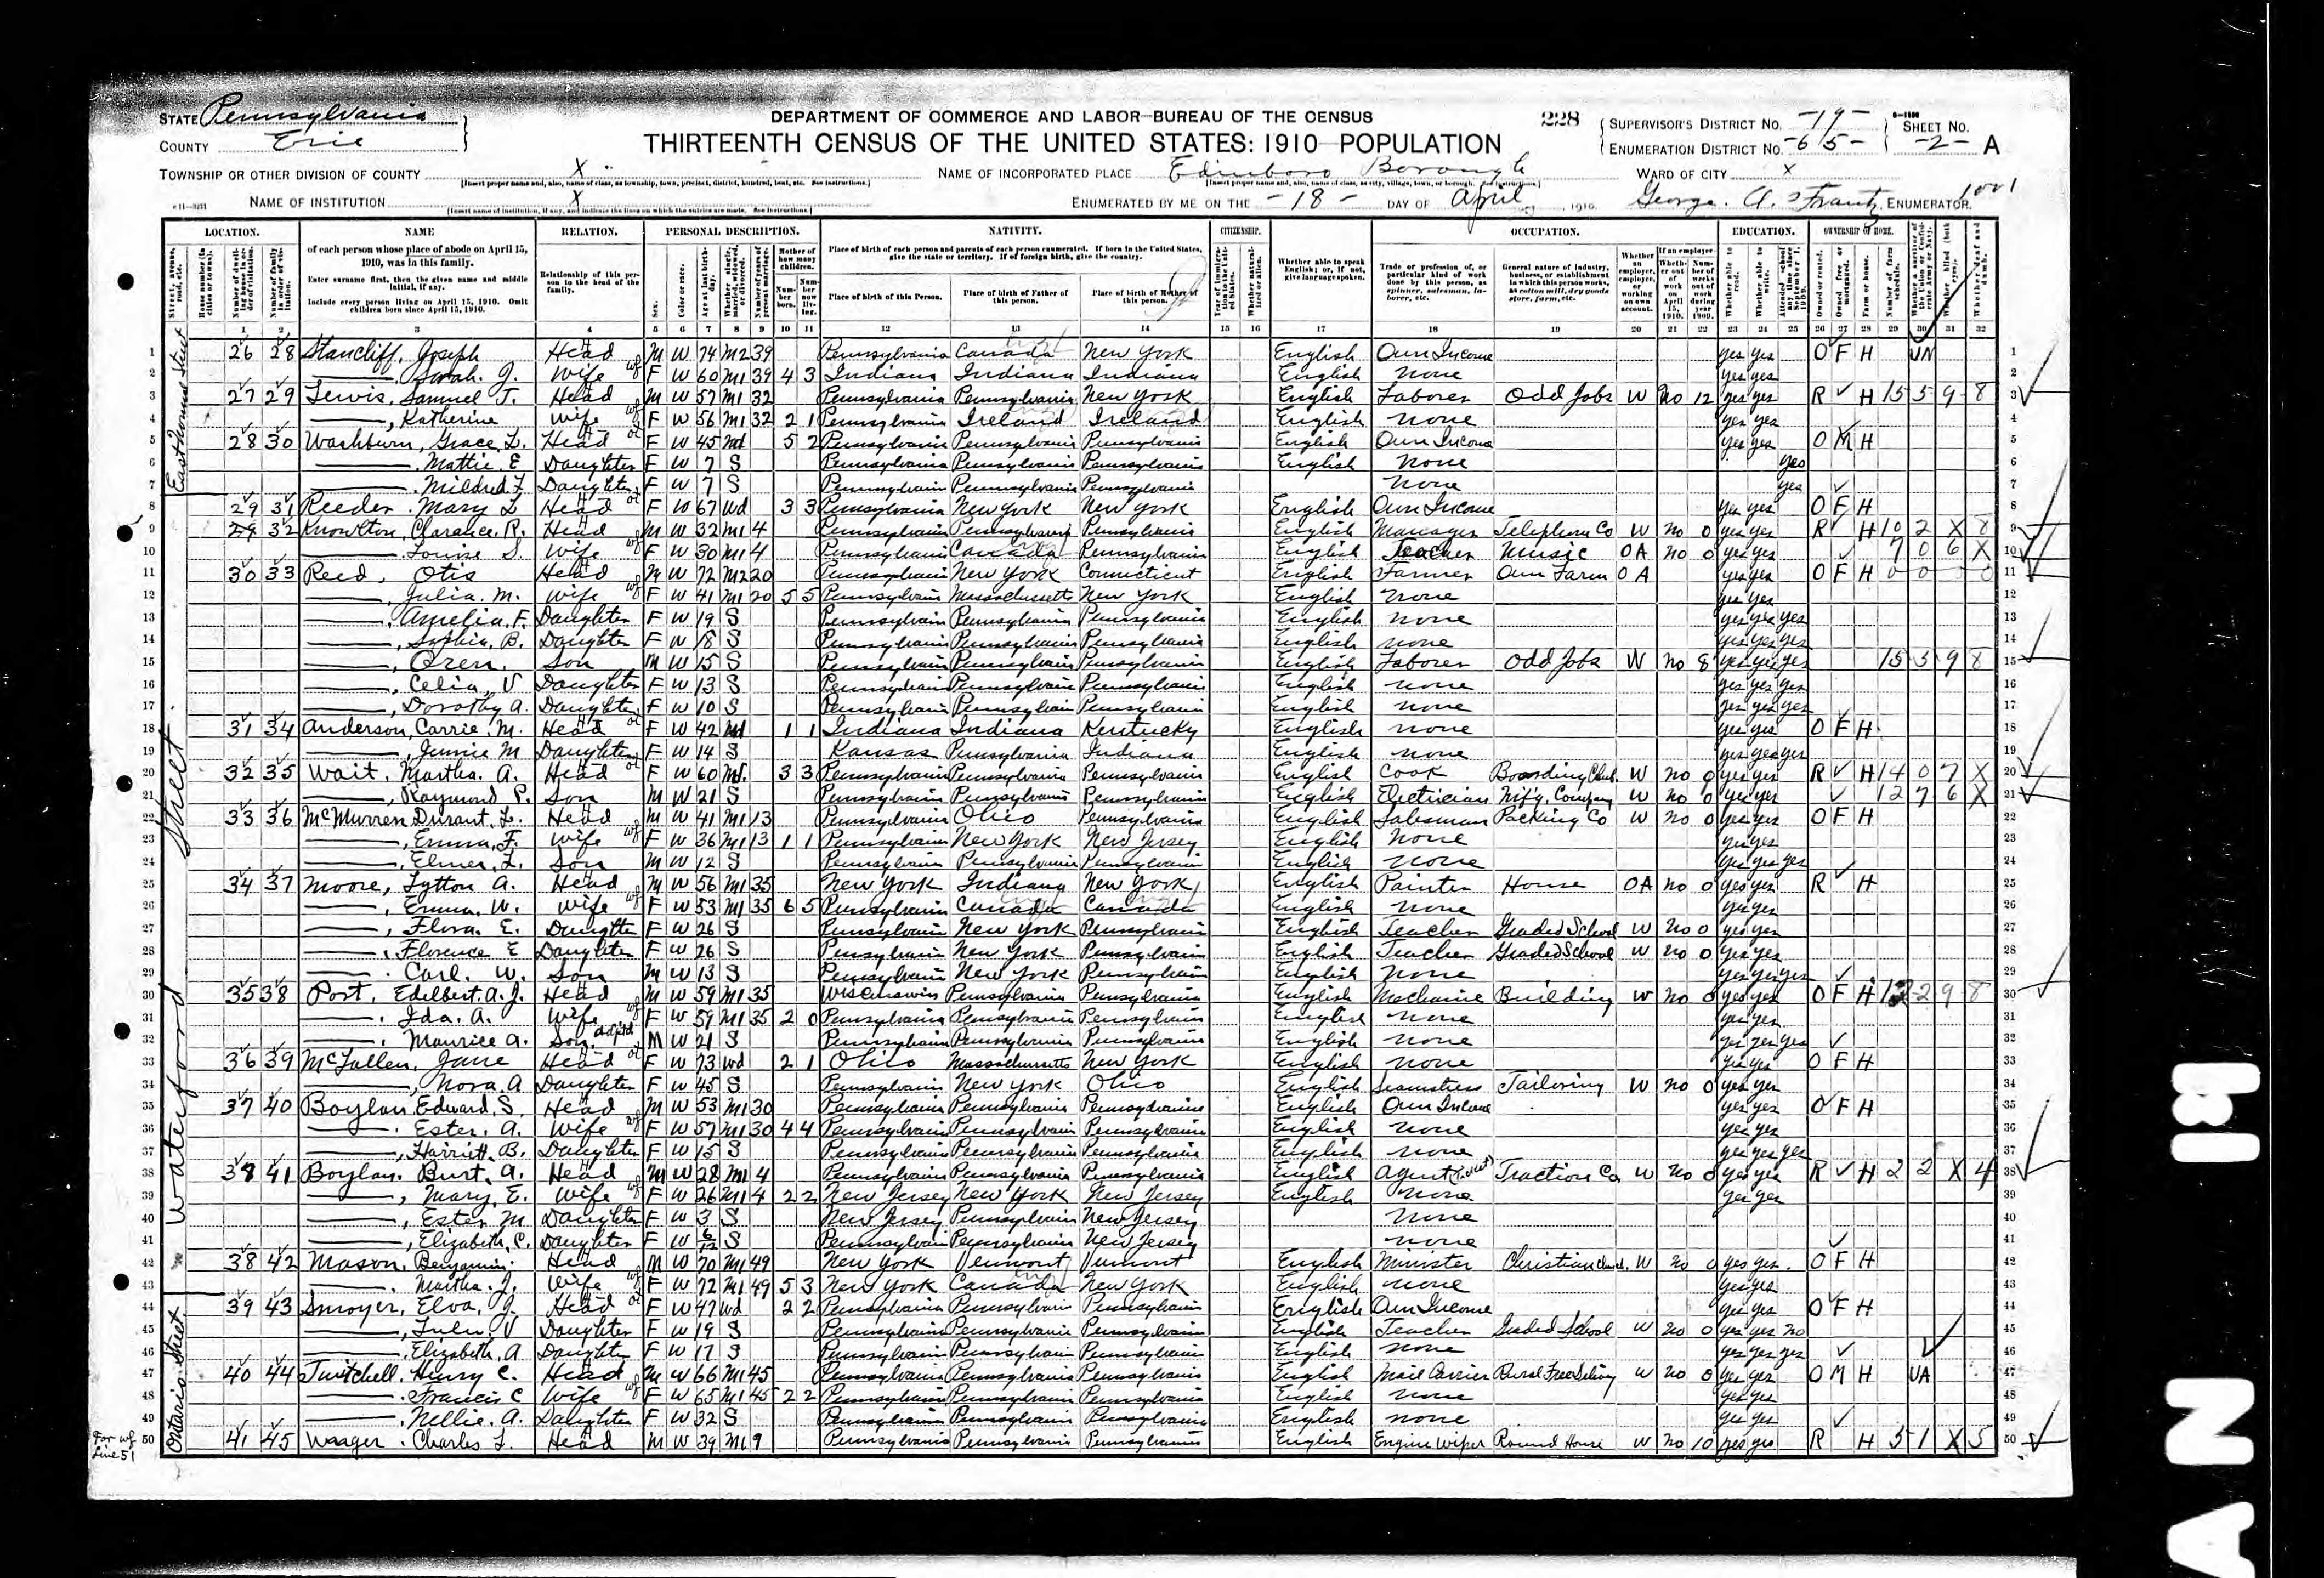 DEPARTMENT OF COMMERCE AND LABOR—BUREAU OF THE CENSUS
THIRTEENTH CENSUS OF THE UNITED STATES: 1910—POPULATION
STATE Pennsylvania
COUNTY Erie
228
SUPERVISOR'S DISTRICT NO. -19-
ENUMERATION DISTRICT NO. -65-
SHEET NO. -2- A
TOWNSHIP OR OTHER DIVISION OF COUNTY X
NAME OF INCORPORATED PLACE Edinboro Borough
WARD OF CITY X
NAME OF INSTITUTION X
ENUMERATED BY ME ON THE -18- DAY OF April 1910. George. A. Frantz, ENUMERATOR. 1001
LOCATION. NAME RELATION. PERSONAL DESCRIPTION. NATIVITY. CITIZENSHIP. OCCUPATION. EDUCATION. OWNERSHIP OF HOME.
of each person whose place of abode on April 15, 1910, was in this family.
Enter surname first, then the given name and middle initial, if any.
Include every person living on April 15, 1910. Omit children born since April 15, 1910.
Relationship of this person to the head of the family.
Place of birth of each person and parents of each person enumerated. If born in the United States, give the state or territory. If of foreign birth, give the country.
Place of birth of this Person. Place of birth of Father of this person. Place of birth of Mother of this person.
Whether able to speak English; or, if not, give language spoken.
Trade or profession of, or particular kind of work done by this person, as spinner, salesman, laborer, etc.
General nature of industry, business, or establishment in which this person works, as cotton mill, dry goods store, farm, etc.
1 2 3 4 5 6 7 8 9 10 11 12 13 14 15 16 17 18 19 20 21 22 23 24 25 26 27 28 29 30 31 32
1 26 28 Stancliff, Joseph Head M W 74 M2 39 Pennsylvania Canada New York English Own Income yes yes O F H UA 1
2 Sarah. J. Wife F W 60 M1 39 4 3 Indiana Indiana Indiana English None yes yes 2
3 27 29 Lewis, Samuel T. Head M W 57 M1 32 Pennsylvania Pennsylvania New York English Laborer Odd Jobs W No 12 yes yes R H 15 5 9 8 3
4 Katherine Wife F W 56 M1 32 2 1 Pennsylvania Ireland Ireland English none yes yes 4
5 28 30 Washburn, Grace L. Head F W 45 Wd 5 2 Pennsylvania Pennsylvania Pennsylvania English Own Income yes yes O M H 5
6 Mattie. E Daughter F W 7 S Pennsylvania Pennsylvania Pennsylvania English None yes 6
7 Mildred. F Daughter F W 7 S Pennsylvania Pennsylvania Pennsylvania None yes 7
8 29 31 Reeder. Mary L Head F W 67 Wd 3 3 Pennsylvania New York New York English Own Income yes yes O F H 8
9 29 32 Knowlton, Clarance. R. Head M W 32 M1 4 Pennsylvania Pennsylvania Pennsylvania English Manager Telephone Co W no 0 yes yes R H 10 2 X 8 9
10 Louise. S. Wife F W 30 M1 4 Pennsylvania Canada Pennsylvania English Teacher Music OA no 0 yes yes 7 0 6 X 10
11 30 33 Reed, Otis Head M W 72 M2 20 Pennsylvania New York Connecticut English Farmer Own Farm OA yes yes O F H 0 0 0 11
12 Julia. M. Wife F W 41 M1 20 5 5 Pennsylvania Massachusetts New York English none yes yes 12
13 Amelia. F. Daughter F W 19 S Pennsylvania Pennsylvania Pennsylvania English none yes yes yes 13
14 Sophia. B. Daughter F W 18 S Pennsylvania Pennsylvania Pennsylvania English none yes yes yes 14
15 Oren. Son M W 15 S Pennsylvania Pennsylvania Pennsylvania English Laborer Odd Jobs W no 8 yes yes yes 15 5 9 8 15
16 Celia. V Daughter F W 13 S Pennsylvania Pennsylvania Pennsylvania English none yes yes yes 16
17 Dorothy A. Daughter F W 10 S Pennsylvania Pennsylvania Pennsylvania English none yes yes yes 17
18 31 34 Anderson, Carrie. M. Head F W 42 Wd 1 1 Indiana Indiana Kentucky English none yes yes O F H 18
19 Jennie M Daughter F W 14 S Kansas Pennsylvania Indiana English none yes yes yes 19
20 32 35 Wait, Martha. A. Head F W 60 Wd. 3 3 Pennsylvania Pennsylvania Pennsylvania English Cook Boarding Club. W no 0 yes yes R H 14 0 7 X 20
21 Raymond P. Son M W 21 S Pennsylvania Pennsylvania Pennsylvania English Electrician Mf'g. Company W no 0 yes yes 12 7 6 X 21
22 33 36 McMurren Durant. L. Head M W 41 M1 13 Pennsylvania Ohio Pennsylvania English Salesman Packing Co W no 0 yes yes O F H 22
23 Emma. F. Wife F W 36 M1 13 1 1 Pennsylvania New York New Jersey English None yes yes 23
24 Elmer. L. Son M W 12 S Pennsylvania Pennsylvania Pennsylvania English none yes yes yes 24
25 34 37 Moore, Lytton A. Head M W 56 M1 35 New York Indiana New York English Painter House OA no 0 yes yes R H 25
26 Emma. W. Wife F W 53 M1 35 6 5 Pennsylvania Canada Canada English none yes yes 26
27 Flora. E. Daughter F W 26 S Pennsylvania New York Pennsylvania English Teacher Graded School W No 0 yes yes 27
28 Florence E Daughter F W 26 S Pennsylvania New York Pennsylvania English Teacher Graded School W no 0 yes yes 28
29 Carl. W. Son M W 13 S Pennsylvania New York Pennsylvania English None yes yes yes 29
30 35 38 Post, Edelbert. A. J. Head M W 59 M1 35 Wisconswin Pennsylvania Pennsylvania English Mechanic Building W no 0 yes yes O F H 12 2 9 8 30
31 Ida. A. Wife F W 59 M1 35 2 0 Pennsylvania Pennsylvania Pennsylvania English none yes yes 31
32 Maurice A. Son. adptd M W 21 S Pennsylvania Pennsylvania Pennsylvania English none yes yes yes 32
33 36 39 McFallen. Jane Head F W 73 Wd 2 1 Ohio Massachusetts New York English none yes yes O F H 33
34 Nora. A Daughter F W 45 S Pennsylvania New York Ohio English Seamstress Tailoring W no 0 yes yes 34
35 37 40 Boylan. Edward. S. Head M W 53 M1 30 Pennsylvania Pennsylvania Pennsylvania English Own Income yes yes O F H 35
36 Ester. A. Wife F W 57 M1 30 4 4 Pennsylvania Pennsylvania Pennsylvania English none yes yes 36
37 Harriett. B. Daughter F W 15 S Pennsylvania Pennsylvania Pennsylvania English none yes yes yes 37
38 38 41 Boylan. Burt. A. Head M W 28 M1 4 Pennsylvania Pennsylvania Pennsylvania English Agent Traction Co W No 0 yes yes R H 2 2 X 4 38
39 Mary. E. Wife F W 26 M1 4 2 2 New Jersey New York New Jersey English None yes yes 39
40 Ester M Daughter F W 3 S New Jersey Pennsylvania New Jersey None 40
41 Elizabeth. C. Daughter F W 6/12 S Pennsylvania Pennsylvania New Jersey none 41
42 38 42 Mason, Benjamin. Head M W 70 M1 49 New York Vermont Vermont English Minister Christian Church. W no 0 yes yes O F H 42
43 Martha. J. Wife F W 72 M1 49 5 3 New York Canada New York English none yes yes 43
44 39 43 Smoyer, Elva. J. Head F W 47 Wd 2 2 Pennsylvania Pennsylvania Pennsylvania English Own Income yes yes O F H 44
45 Lulu. V Daughter F W 19 S Pennsylvania Pennsylvania Pennsylvania English Teacher Graded School W no 0 yes yes no 45
46 Elizabeth. A Daughter F W 17 S Pennsylvania Pennsylvania Pennsylvania English none yes yes yes 46
47 40 44 Twitchell. Henry C. Head M W 66 M1 45 Pennsylvania Pennsylvania Pennsylvania English Mail Carrier Rural Free Delivery W no 0 yes yes O M H UA 47
48 Francis C Wife F W 65 M1 45 2 2 Pennsylvania Pennsylvania Pennsylvania English none yes yes 48
49 Nellie. A. Daughter F W 32 S Pennsylvania Pennsylvania Pennsylvania English none yes yes 49
50 41 45 Waager. Charles L. Head M W 39 M1 9 Pennsylvania Pennsylvania Pennsylvania English Engine Wiper Round House W no 10 yes yes R H 5 1 X 5 50
For wf Line 51
Waterford Street
Ontario Street